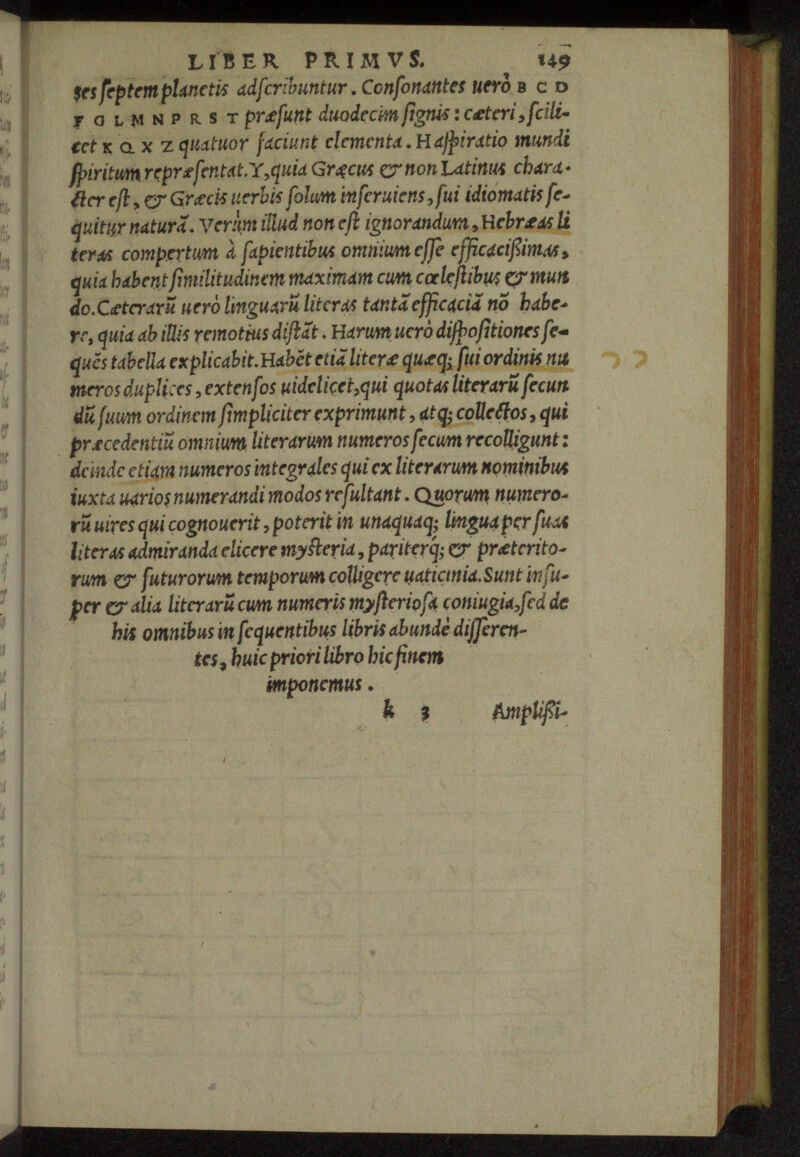 LIBER PRIMVS. 149
tes septem planctis adscribuntur. Consonantes uerò B C D
F G L M N P R S T præsunt duodecim signis: cæteri, scili-
cet K Q X Z quatuor faciunt elementa. H aspiratio mundi
spiritum repræsentat. Y, quia Gręcus & non Latinus chara-
cter est, & Græcis uerbis solum inseruiens, sui idiomatis se-
quitur naturā. Verùm illud non est ignorandum, Hebræas li
teras compertum à sapientibus omnium esse efficacißimas,
quia habent similitudinem maximam cum cœlestibus & mun
do. Cæterarū uerò linguarū literas tantā efficaciā nō habe-
re, quia ab illis remotius distāt. Harum uerò dispositiones se-
quēs tabella explicabit. Habēt etiā literæ quæq; sui ordinis nu
meros duplices, extensos uidelicet, qui quotas literarū secun
dū suum ordinem simpliciter exprimunt, atq; collectos, qui
præcedentiū omnium literarum numeros secum recolligunt:
deinde etiam numeros integrales qui ex literarum nominibus
iuxta uarios numerandi modos resultant. Quorum numero-
rū uires qui cognouerit, poterit in unaquaq; lingua per suas
literas admiranda elicere mysteria, pariterq; & præterito-
rum & futurorum temporum colligere uaticinia. Sunt insu-
per & alia literarū cum numeris mysteriosa coniugia, sed de
his omnibus in sequentibus libris abundè disseren-
tes, huic priori libro hic finem
imponemus.
k 3 Amplißi-